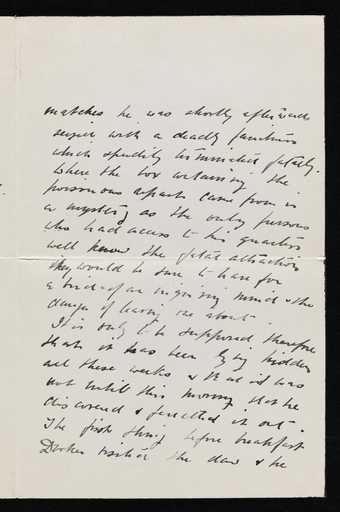 matches he was shortly afterwards
seized with a deadly faintness
which speedily terminated fatally.
Where the box containing the
poisonous repast came from is
a mystery as the only persons
who had access to his quarters
well know the fatal attraction
they would be sure to have for
a bird of an inquiring mind & the
danger of leaving one about.
It is only to be supposed therefore
that it has been lying hidden
all these weeks & that it was
not until this morning that he
discovered & ferretted it out.
The first thing before breakfast
Darker visited the dam & he